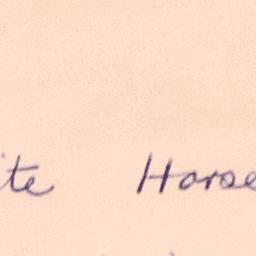 ite Horse